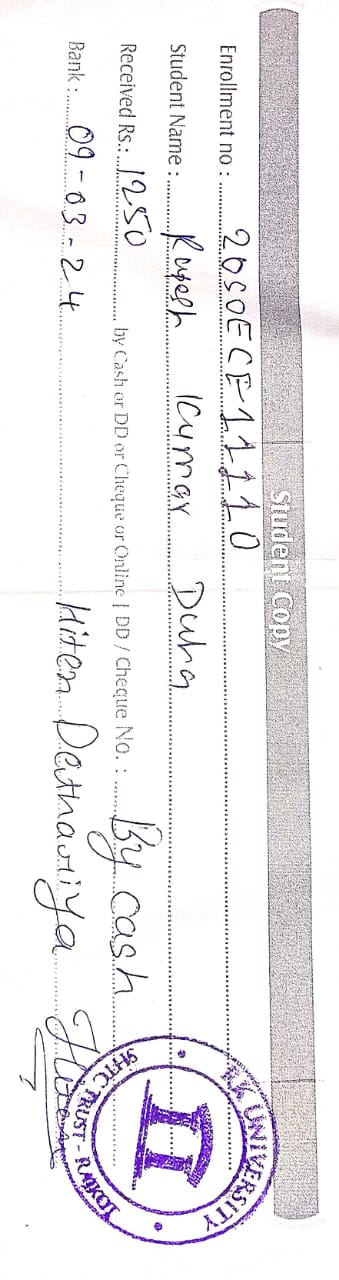 Student Copy
Enrollment no : 20SOECE11110
Student Name : Rupesh Kumar Duha
Received Rs.: 1250 by Cash or DD or Cheque or Online | DD / Cheque No. : By cash
Bank : 09-03-24 Hiten Dethariya
RK UNIVERSITY
SHTC TRUST - RAJKOT